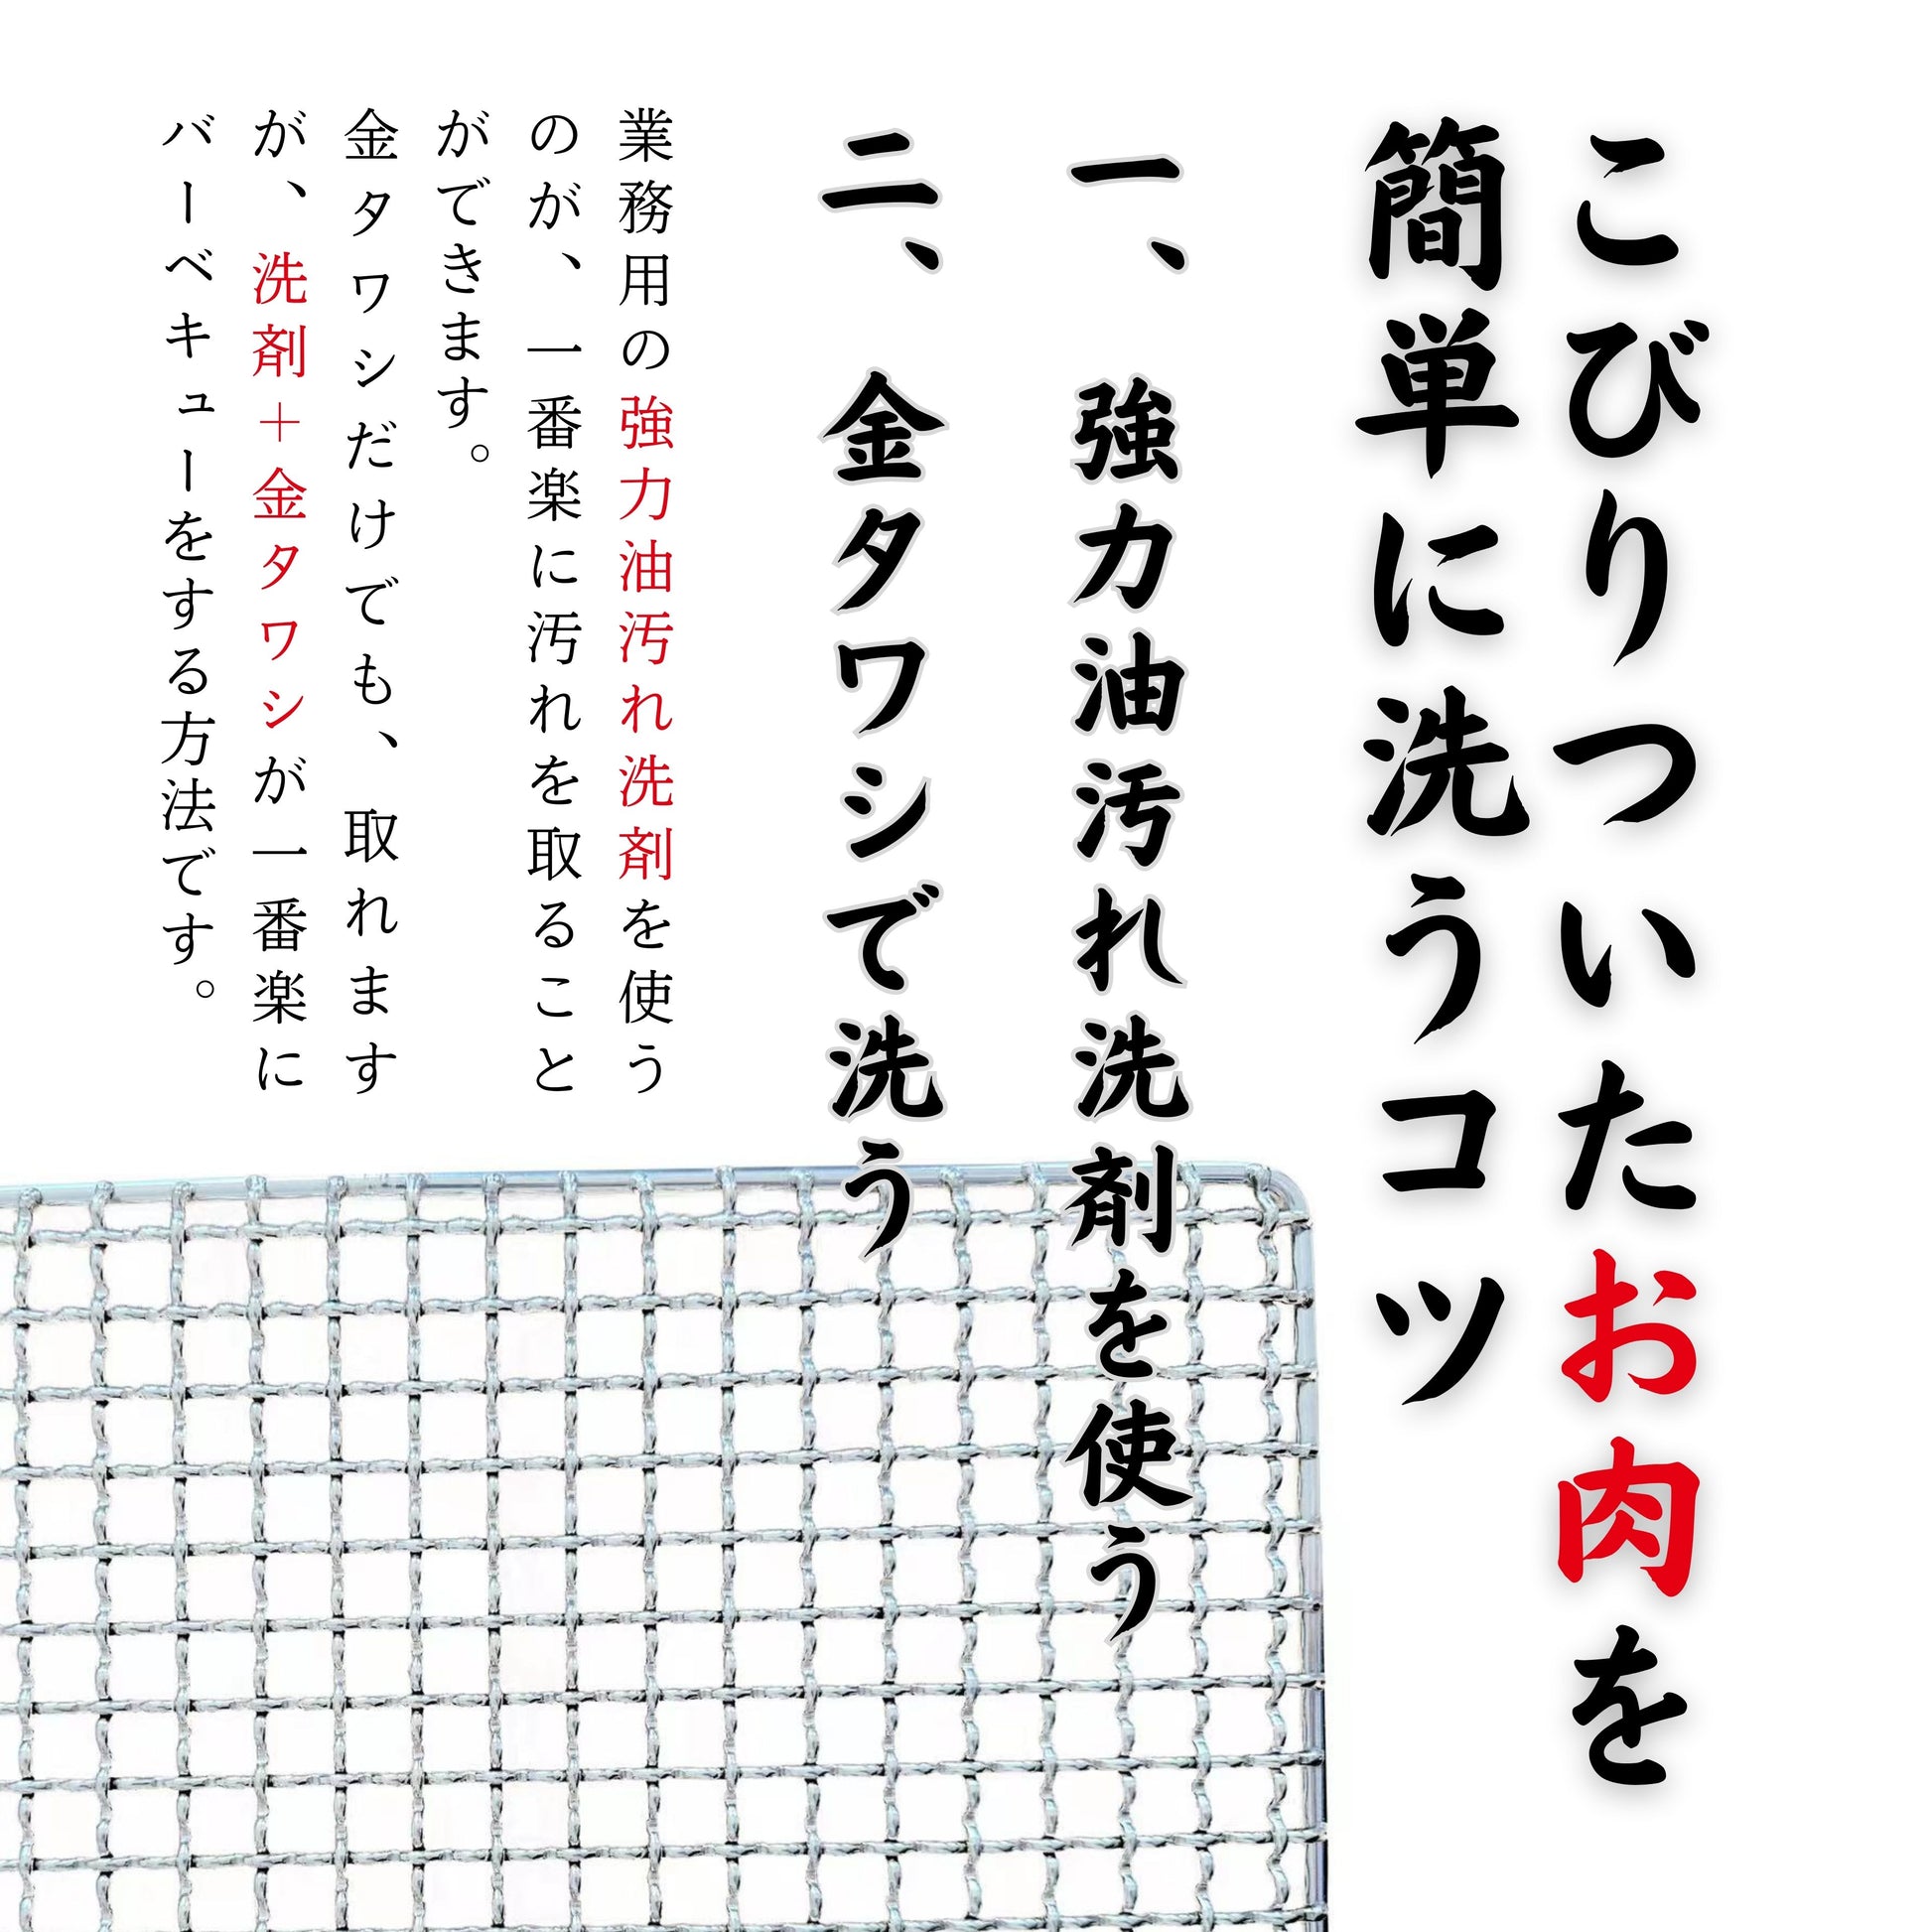 こびりついたお肉を
簡単に洗うコツ
一、強力油汚れ洗剤を使う
二、金タワシで洗う
業務用の強力油汚れ洗剤を使う
のが、一番楽に汚れを取ること
ができます。
金タワシだけでも、取れます
が、洗剤＋金タワシが一番楽に
バーベキューをする方法です。